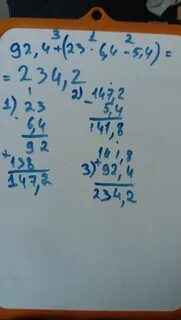 3 1 2
92,4+(23·6,4-5,4)=
=234,2
1) 23
6,4
92
+138
147,2
2) 147,2
- 5,4
141,8
141,8
3) +92,4
234,2